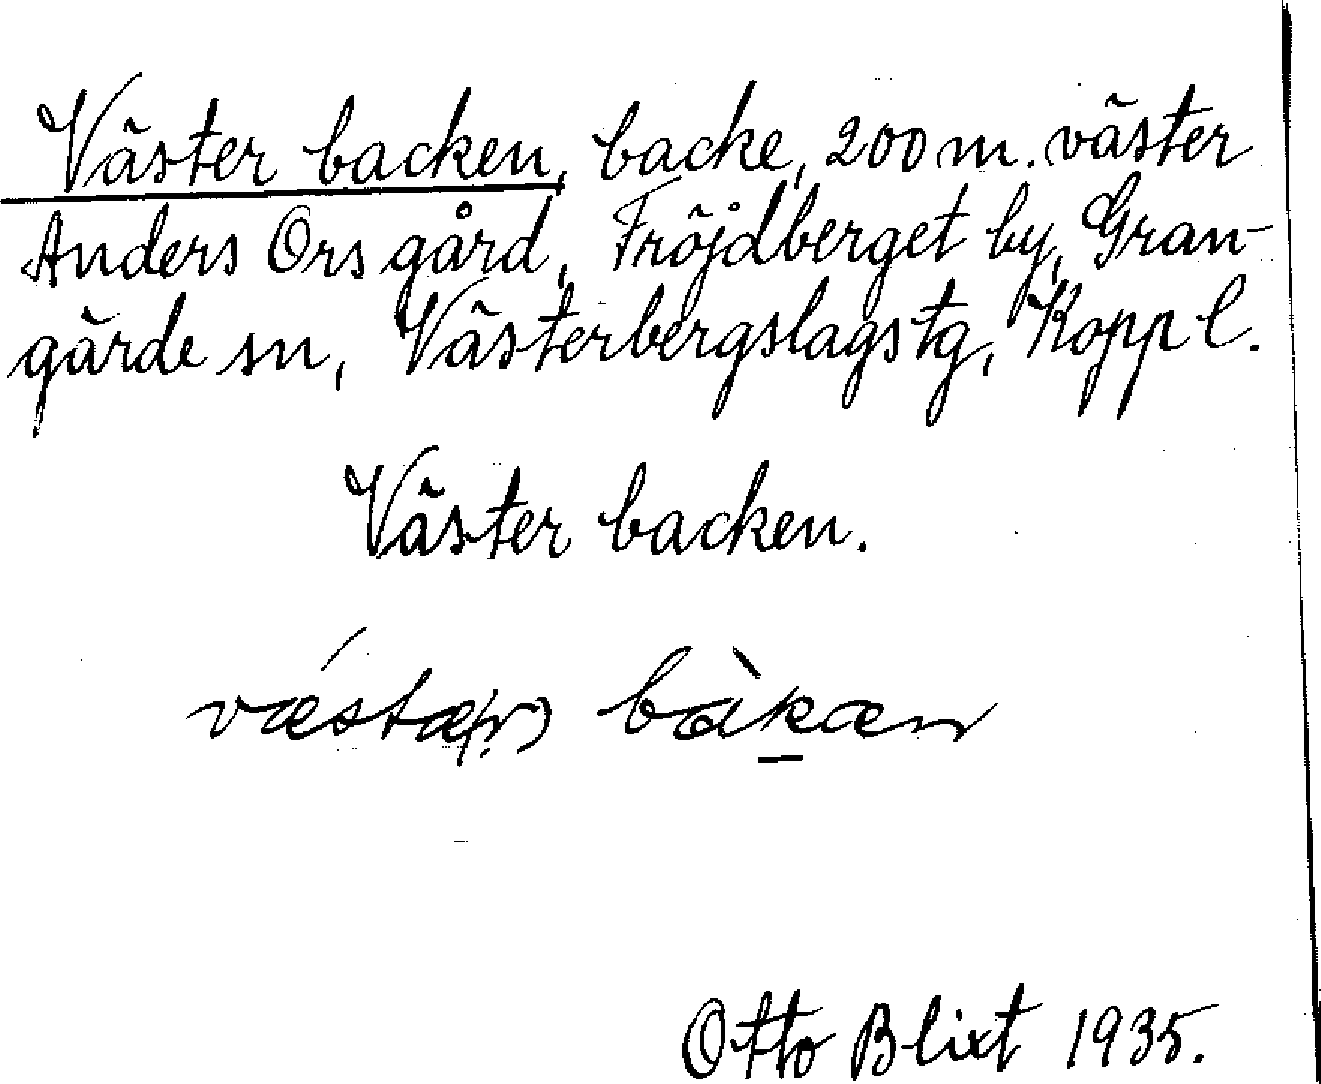 Väster backen, backe, 200 m. väster
Anders Ors gård, Fröjdberget by, Gran-
gärde sn, Västerbergslags tg, Kopp l.
Väster backen.
vǽstæ(r) bàkæn
Otto Blixt 1935.